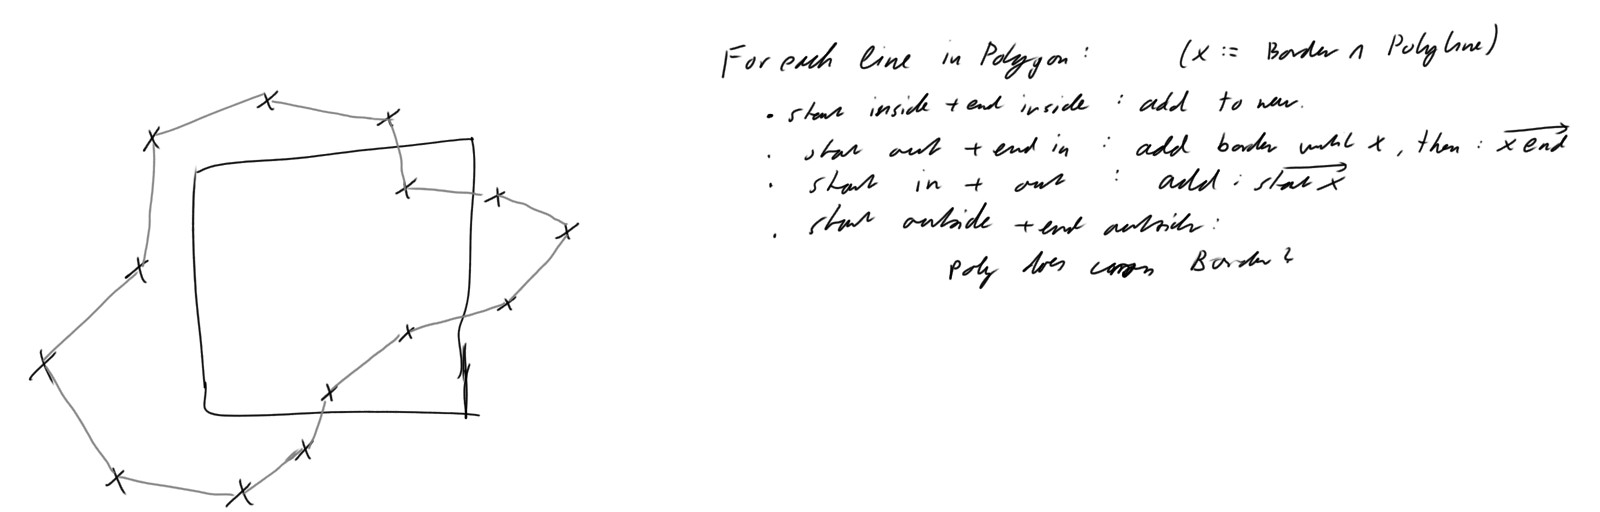 For each line in Polygon: (x := Border ∩ Polyline)
• start inside + end inside : add to new.
• start out + end in : add border until x, then : x end
• start in + out : add : start x
• start outside + end outside :
Poly does cross Border?